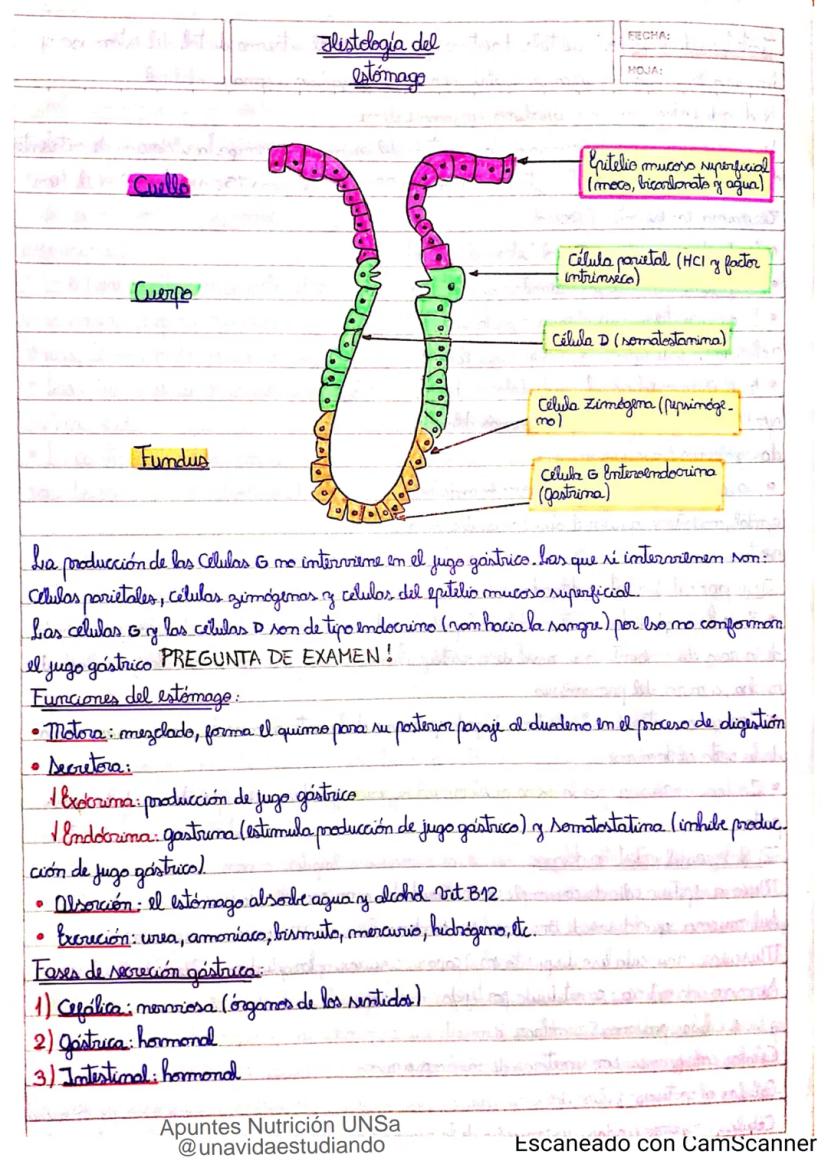 Histología del
estómago
FECHA:
HOJA:
Cuello
Epitelio mucoso superficial
(moco, bicarbonato y agua)
Célula parietal (HCl y factor
intrínseco)
Cuerpo
Célula D (somatostanina)
Célula Zimógena (pepsinóge-
no)
Fundus
Célula G Enteroendocrina
(gastrina)
La producción de las Células G no interviene en el jugo gástrico. Las que si intervienen son:
Células parietales, células zimógenas y celulas del epitelio mucoso superficial.
Las celulas G y las células D son de tipo endocrino (van hacia la sangre) por eso no conforman
el jugo gástrico PREGUNTA DE EXAMEN!
Funciones del estómago:
• Motora: mezclado, forma el quimo para su posterior pasaje al duodeno en el proceso de digestión
• Secretora:
Exócrina: producción de jugo gástrico
Endócrina: gastrina (estimula producción de jugo gástrico) y somatostatina (inhibe produc-
ción de jugo gástrico).
• Absorción: el estómago absorbe agua y alcohol Vit B12
• Excreción: urea, amoníaco, bismuto, mercurio, hidrógeno, etc.
Fases de secreción gástrica:
1) Cefálica: nerviosa (órganos de los sentidos)
2) Gástrica: hormonal
3) Intestinal: hormonal
Apuntes Nutrición UNSa
@unavidaestudiando
Escaneado con CamScanner